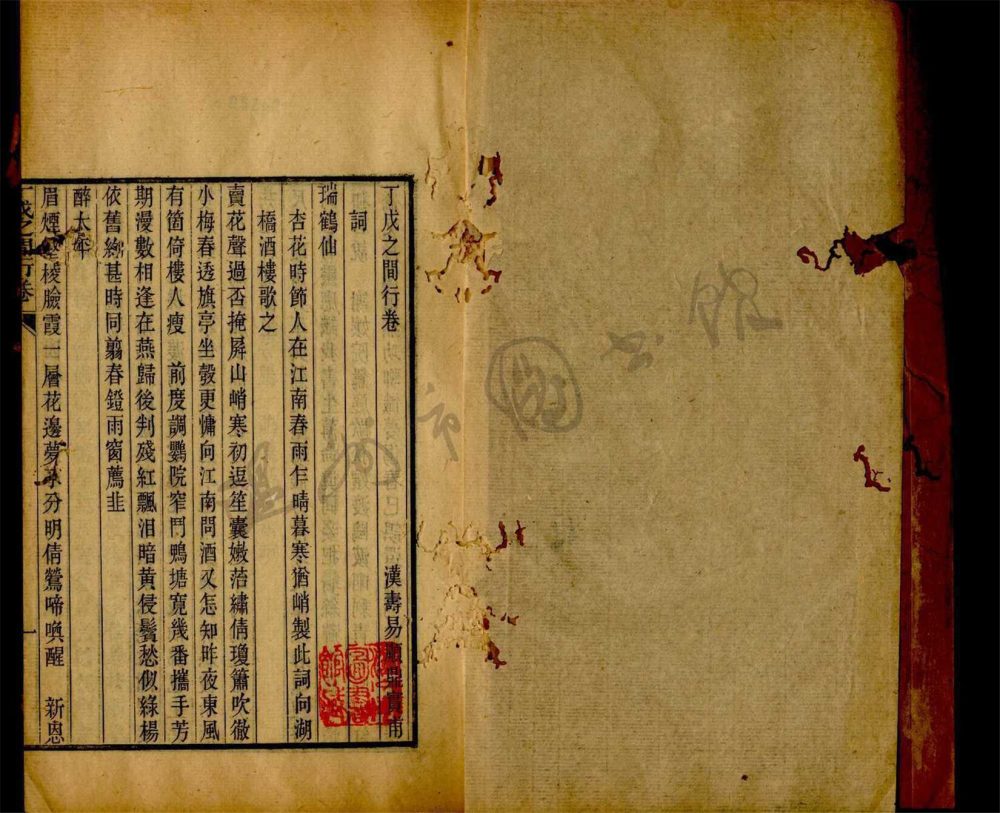 丁戊之間行卷 漢壽易順鼎實甫
詞
瑞鶴仙
杏花時節人在江南春雨乍晴暮寒猶峭製此詞向湖
橋酒樓歌之
賣花聲過否掩屏山峭寒初逗笙囊嫩萡繡倩瓊簫吹徹
小梅春透旗亭坐彀更慵向江南問酒又怎知昨夜東風
有箇倚樓人瘦 前度調鸚院窄鬥鴨塘寬幾番攜手芳
期漫數相逢在燕歸後判殘紅飄泪暗黄侵鬢愁似綠楊
依舊總甚時同翦春鐙雨窗薦韭
醉太年
眉煙 梭臉霞一層花邊夢 分明倩鶯啼喚醒 新恩
丁戊之間行卷
一
市圖書館